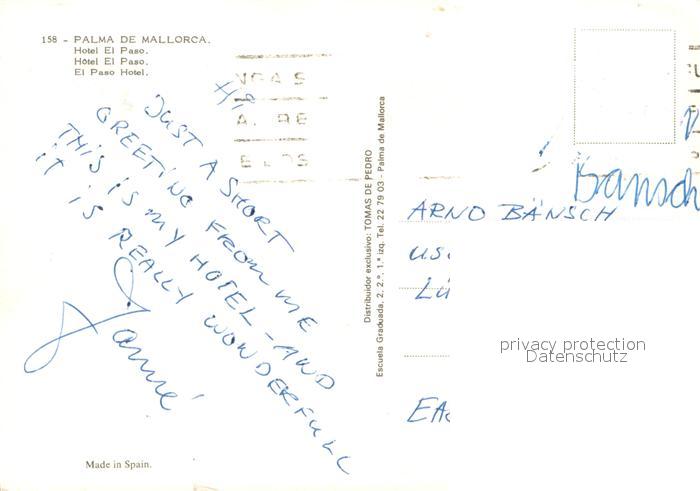 158 - PALMA DE MALLORCA.
Hotel El Paso.
Hôtel El Paso.
El Paso Hotel.
HI
JUST A SHORT
GREETING FROM ME
THIS IS MY HOTEL - AND
IT IS REALLY WONDERFULL
Made in Spain.
Distribuidor exclusivo: TOMAS DE PEDRO
Escuela Graduada, 2, 2.º, 1.ª izq. Tel. 22 79 03 - Palma de Mallorca
Bänsch
ARNO BÄNSCH
privacy protection
Datenschutz